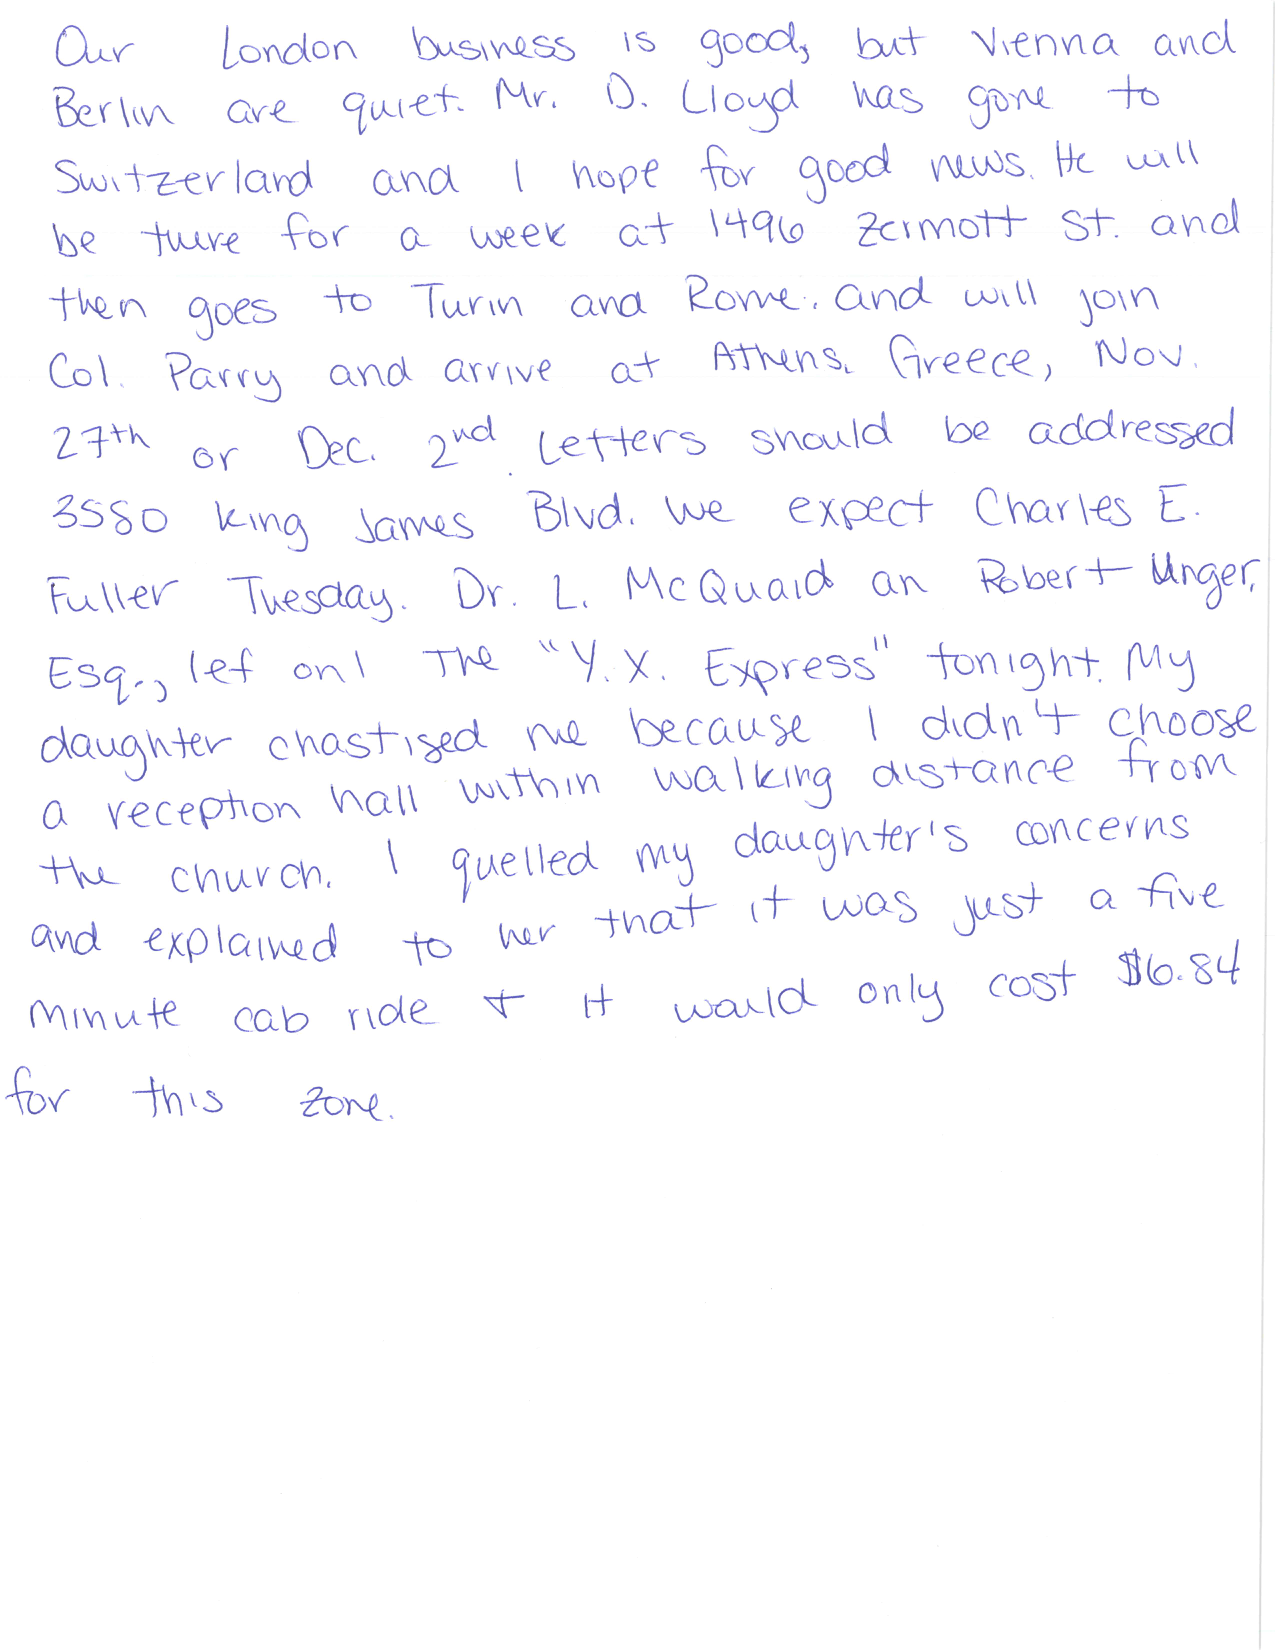 Our London business is good, but Vienna and
Berlin are quiet. Mr. D. Lloyd has gone to
Switzerland and I hope for good news. He will
be there for a week at 1496 Zermott St. and
then goes to Turin and Rome. and will join
Col. Parry and arrive at Athens. Greece, Nov.
27th or Dec. 2nd. Letters should be addressed
3580 King James Blvd. we expect Charles E.
Fuller Tuesday. Dr. L. McQuaid an Robert Unger,
Esq., lef onl The "Y. X. Express" tonight. My
daughter chastised me because I didn't choose
a reception hall within walking distance from
the church. I quelled my daughter's concerns
and explained to her that it was just a five
minute cab ride + it would only cost $6.84
for this zone.